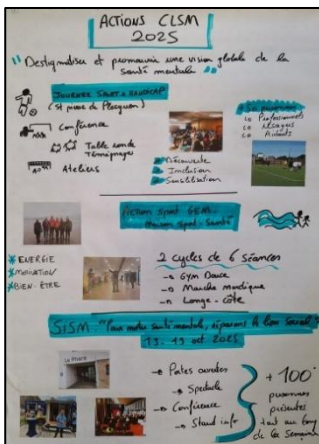 ACTIONS CLSM
2025
"Destigmatiser et promouvoir une vision globale de la
santé mentale"
JOURNEE SPORT & HANDICAP
(St pierre de Plesguen)
Conférence
Table ronde
Témoignages
Ateliers
Découverte
Inclusion
Sensibilisation
Professionnels
Usagers
Aidants
Action Sport GEM
Maison Sport-Santé
ENERGIE
MOTIVATION
BIEN-ÊTRE
2 cycles de 6 séances
→ Gym Douce
→ Marche nordique
→ Longe-côte
SISM "Pour notre santé mentale, réparons le lien social"
Le Phare
→ Portes ouvertes
→ Spectacle
→ Conférence
→ Stand info
+ 100
personnes
présentes
tout au long
de la semaine